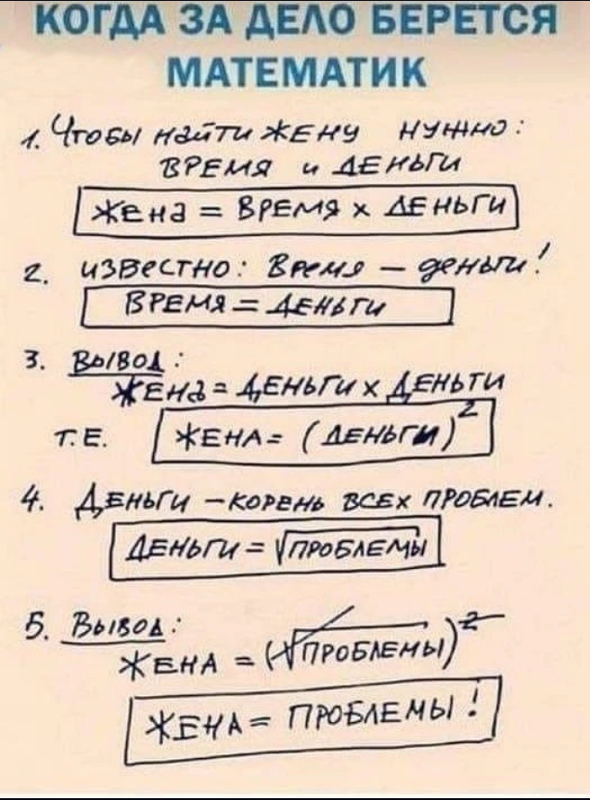 КОГДА ЗА ДЕЛО БЕРЕТСЯ
МАТЕМАТИК
1. Чтобы найти жену нужно:
время и деньги
Жена = время x деньги
2. известно: Время — деньги!
время = деньги
3. Вывод:
жена = деньги x деньги
т.е. жена = (деньги)²
4. Деньги — корень всех проблем.
деньги = √проблемы
5. Вывод:
жена = (√проблемы)²
жена = проблемы!